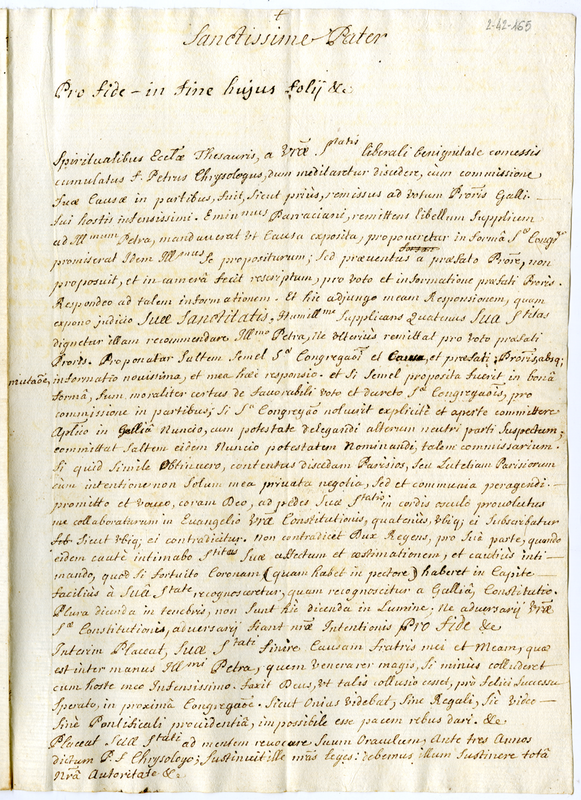 +
2-42-165
Sanctissime Pater
Pro Fide - in Fine hujus Folij &c
Spiritualibus Ecclæ Thesauris, a Vræ Statis liberali benignitate concessis
cumulatus F. Petrus Chrysologus, dum meditaretur discedere, cum commissione
suæ Causæ in partibus, fuit, sicut priùs, remissus ad votum Proris Galli-
sui hostis infensissimi. Eminmus Barraciani, remittens libellum supplicem
ad Illmum Petra, mandaverat ut Causa exposita, proponeretur in formâ Sæ Congis
promiserat idem Illmus se propositurum; sed præventus a præfato Prore, non
proposuit, et in camerâ fecit rescriptum, pro voto et informatione præfati Proris.
Respondeo ad talem informationem. Et hic adjungo meam Responsionem, quam
expono judicio Suæ Sanctitatis, Humillme Supplicans Quatenus Sua Stitas
dignetur illam recommendare Illmo Petra, ne ulteriùs remittat pro voto præfati
Proris. Proponatur saltem semel Sæ Congregaõi et Causa, et præfati Proris absq;
mutaõe, informatio novissima, et mea hic responsio. et si semel proposita fuerit in bonâ
formâ, sum moraliter certus de favorabili voto et decreto Sæ Congregaõis, pro
commissione in partibus; si Sæ Congregaõ noluerit explicitè et apertè committere
Aplico in Galliâ Nuncio, cum potestate delegandi alterum neutri parti suspectum;
committat saltem eidem Nuncio potestatem Nominandi, talem commissarium.
Si quid simile Obtinuero, contentus discedam Parisios, seu Lutetiam Parisiorum
cum intentione non solum mea privata negotia, sed et communia peragendi.
promitto et voveo, coram Deo, ad pedes Suæ Statis, in cordis osculo provolutus
me collaboraturum in Evangelio Vræ Constitutionis, quatenùs, ubiq; ei subscribatur
sicut ubiq; ei contradicitur. Non contradicet Dux Regens, pro suâ parte, quando
eidem cautè intimabo Stitis Suæ affectum et æstimationem, et cautiùs inti-
mando, quod si fortuitò Coronam (quam habet in pectore) haberet in Capite
faciliùs à Suâ State recognosceretur, quam recognoscitur a Galliâ, Constitutio.
Plura dicenda in tenebris, non sunt hic dicenda in Lumine. Ne adversarij Vræ
Sæ Constitutionis, adversarij fiant nræ Intentionis Pro Fide &c
Interim Placeat, Suæ Stati finire Causam Fratris mei et Meam, quæ
est inter manus Illmi Petra, quem venerarer magis, si minùs colluderet
cum hoste meo Infensissimo. Faxit Deus, ut talis collusio cesset, prò felici successu
sperato, in proximâ Congregaõe. Sicut Onias videbat, sine Regali, sic video
sinè Pontificali providentiâ, impossibile esse pacem rebus dari. &c
Placeat Suæ Stati ad mentem revocare Suum Oraculum, Ante tres Annos
dictum P. F. Chrysologo; Sustinuit ille nras leges: debemus illum sustinere totâ
Nrâ Autoritate &c